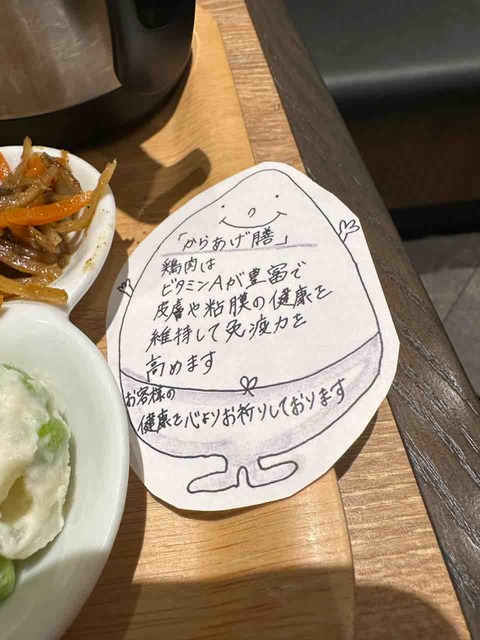 「からあげ膳」
鶏肉は
ビタミンAが豊富で
皮膚や粘膜の健康を
維持して免疫力を
高めます
お客様の
健康を心よりお祈りしております